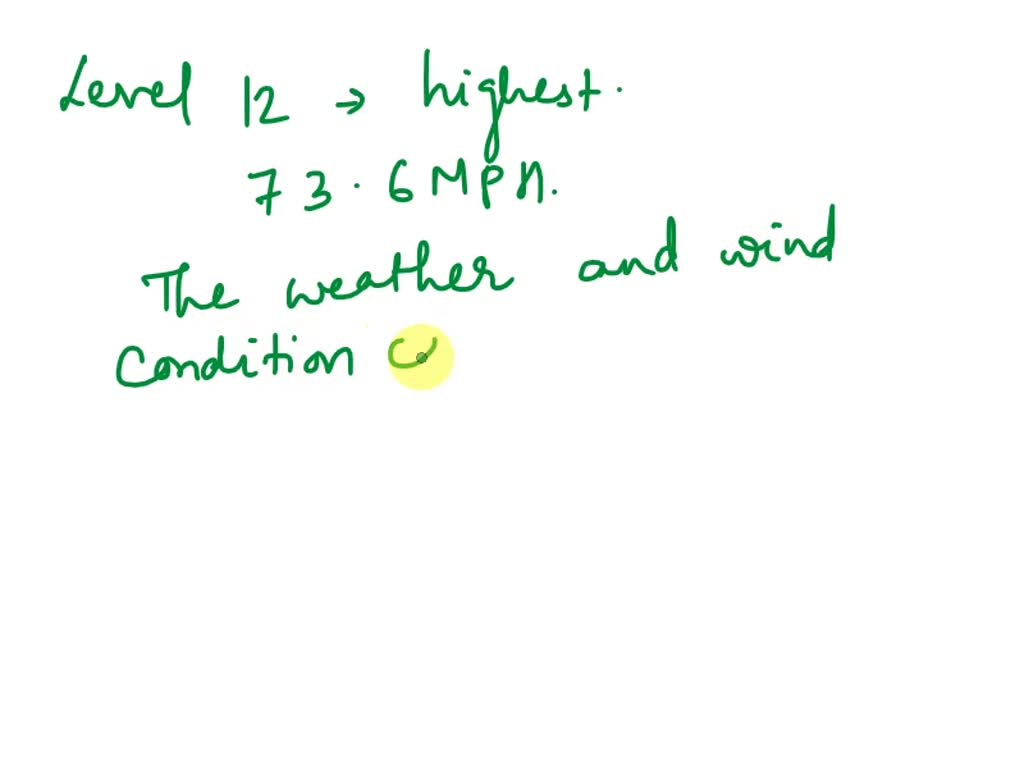 Level 12 → highest.
73.6 MPH.
The weather and wind
condition